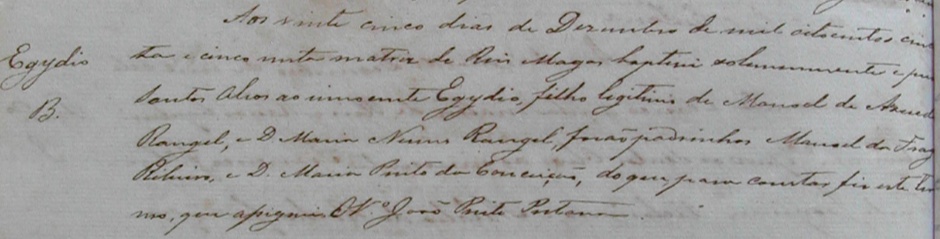 Aos vinte cinco dias de Dezembro de mil oitocentos cin
Egydio
ta e cinco nesta matriz de Reis Magos baptisei solemnemente e puz
Santos Oleos ao innocente Egydio, filho legitimo de Manoel de Azeved
B.
Rangel, e D. Maria Nunes Rangel, forão padrinhos Manoel da Frag
Ribeiro, e D. Maria Pinto da Conceição, do que para constar fiz este ter
mo, que assignei. O Vº João Pinto